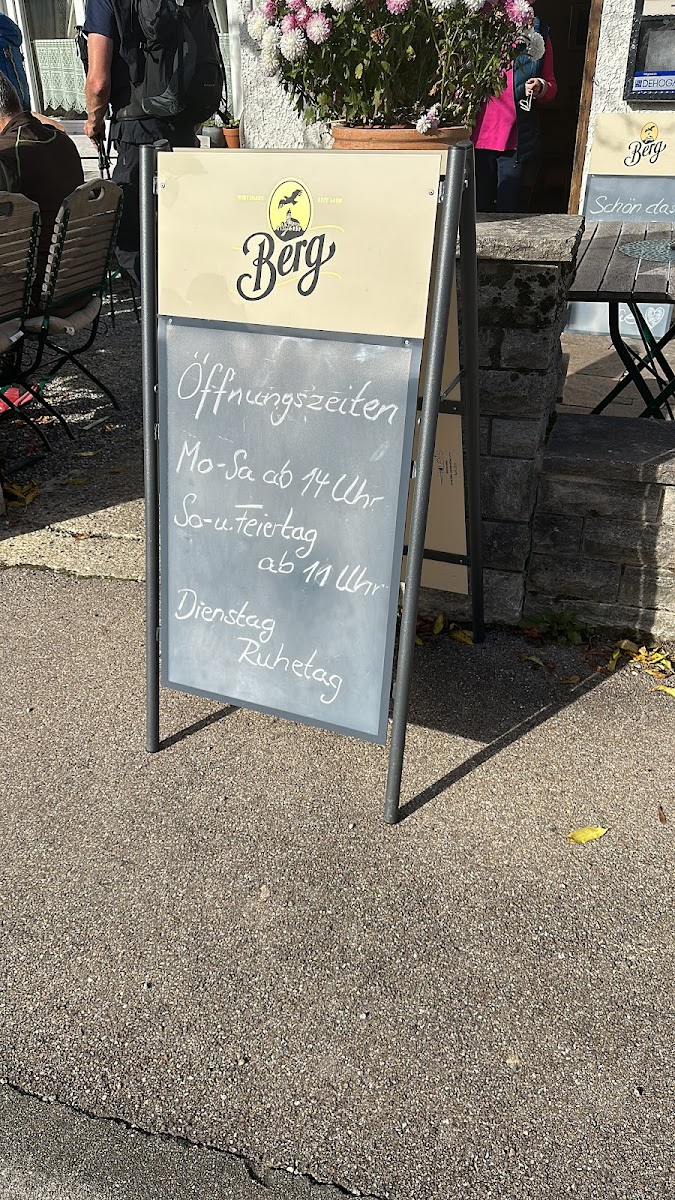 Berg
Öffnungszeiten
Mo-Sa ab 14 Uhr
So-u. Feiertag
ab 11 Uhr
Dienstag
Ruhetag
DEHOGA
Berg
Schön das